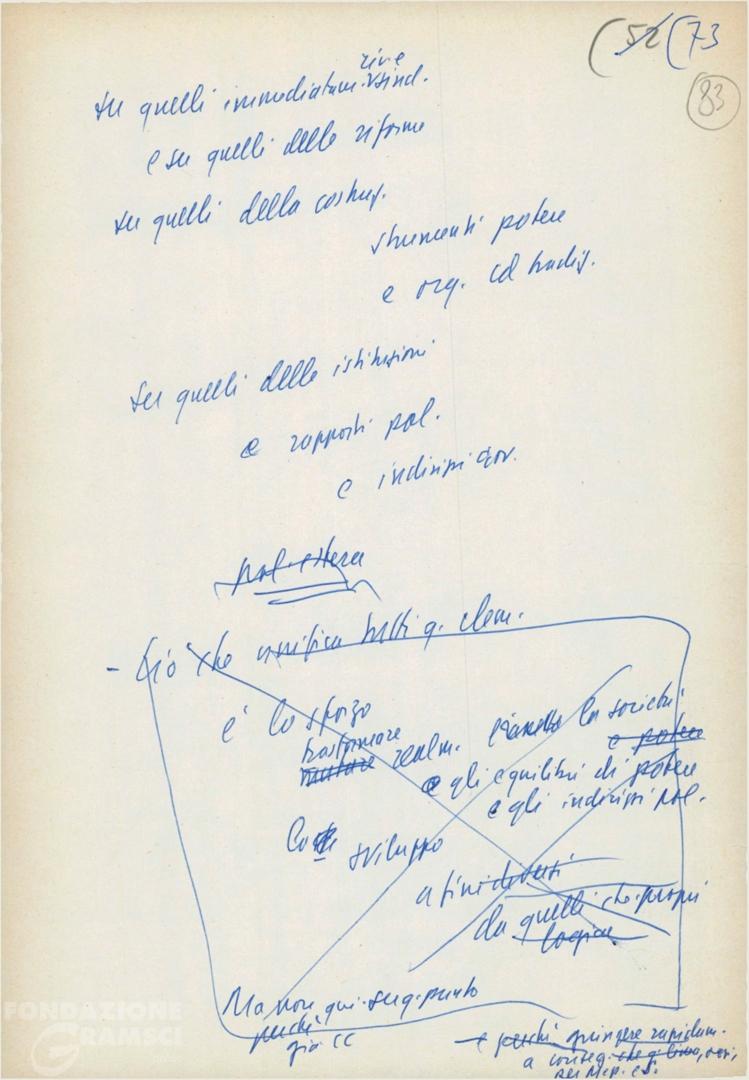 (52 (73
83
rive
su quelli immediatam. sind.
e su quelli delle riforme
su quelli della costruz.
strumenti potere
e org. ed tradiz.
su quelli delle istituzioni
e rapporti pol.
e indirizzi gov.
pol. estera
- Ciò che unifica tutti q. elem.
è lo sforzo
trasformare
mutare realm. la società
e potere
e gli equilibri di potere
e gli indirizzi pol.
sviluppo
a fini diversi
da quelli che propri
logica
Ma non qui su q. punto
perché
già CC
e perché giungere rapidam.
a
FONDAZIONE
GRAMSCI